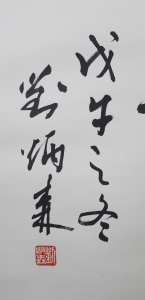 戊午之冬
刘炳森